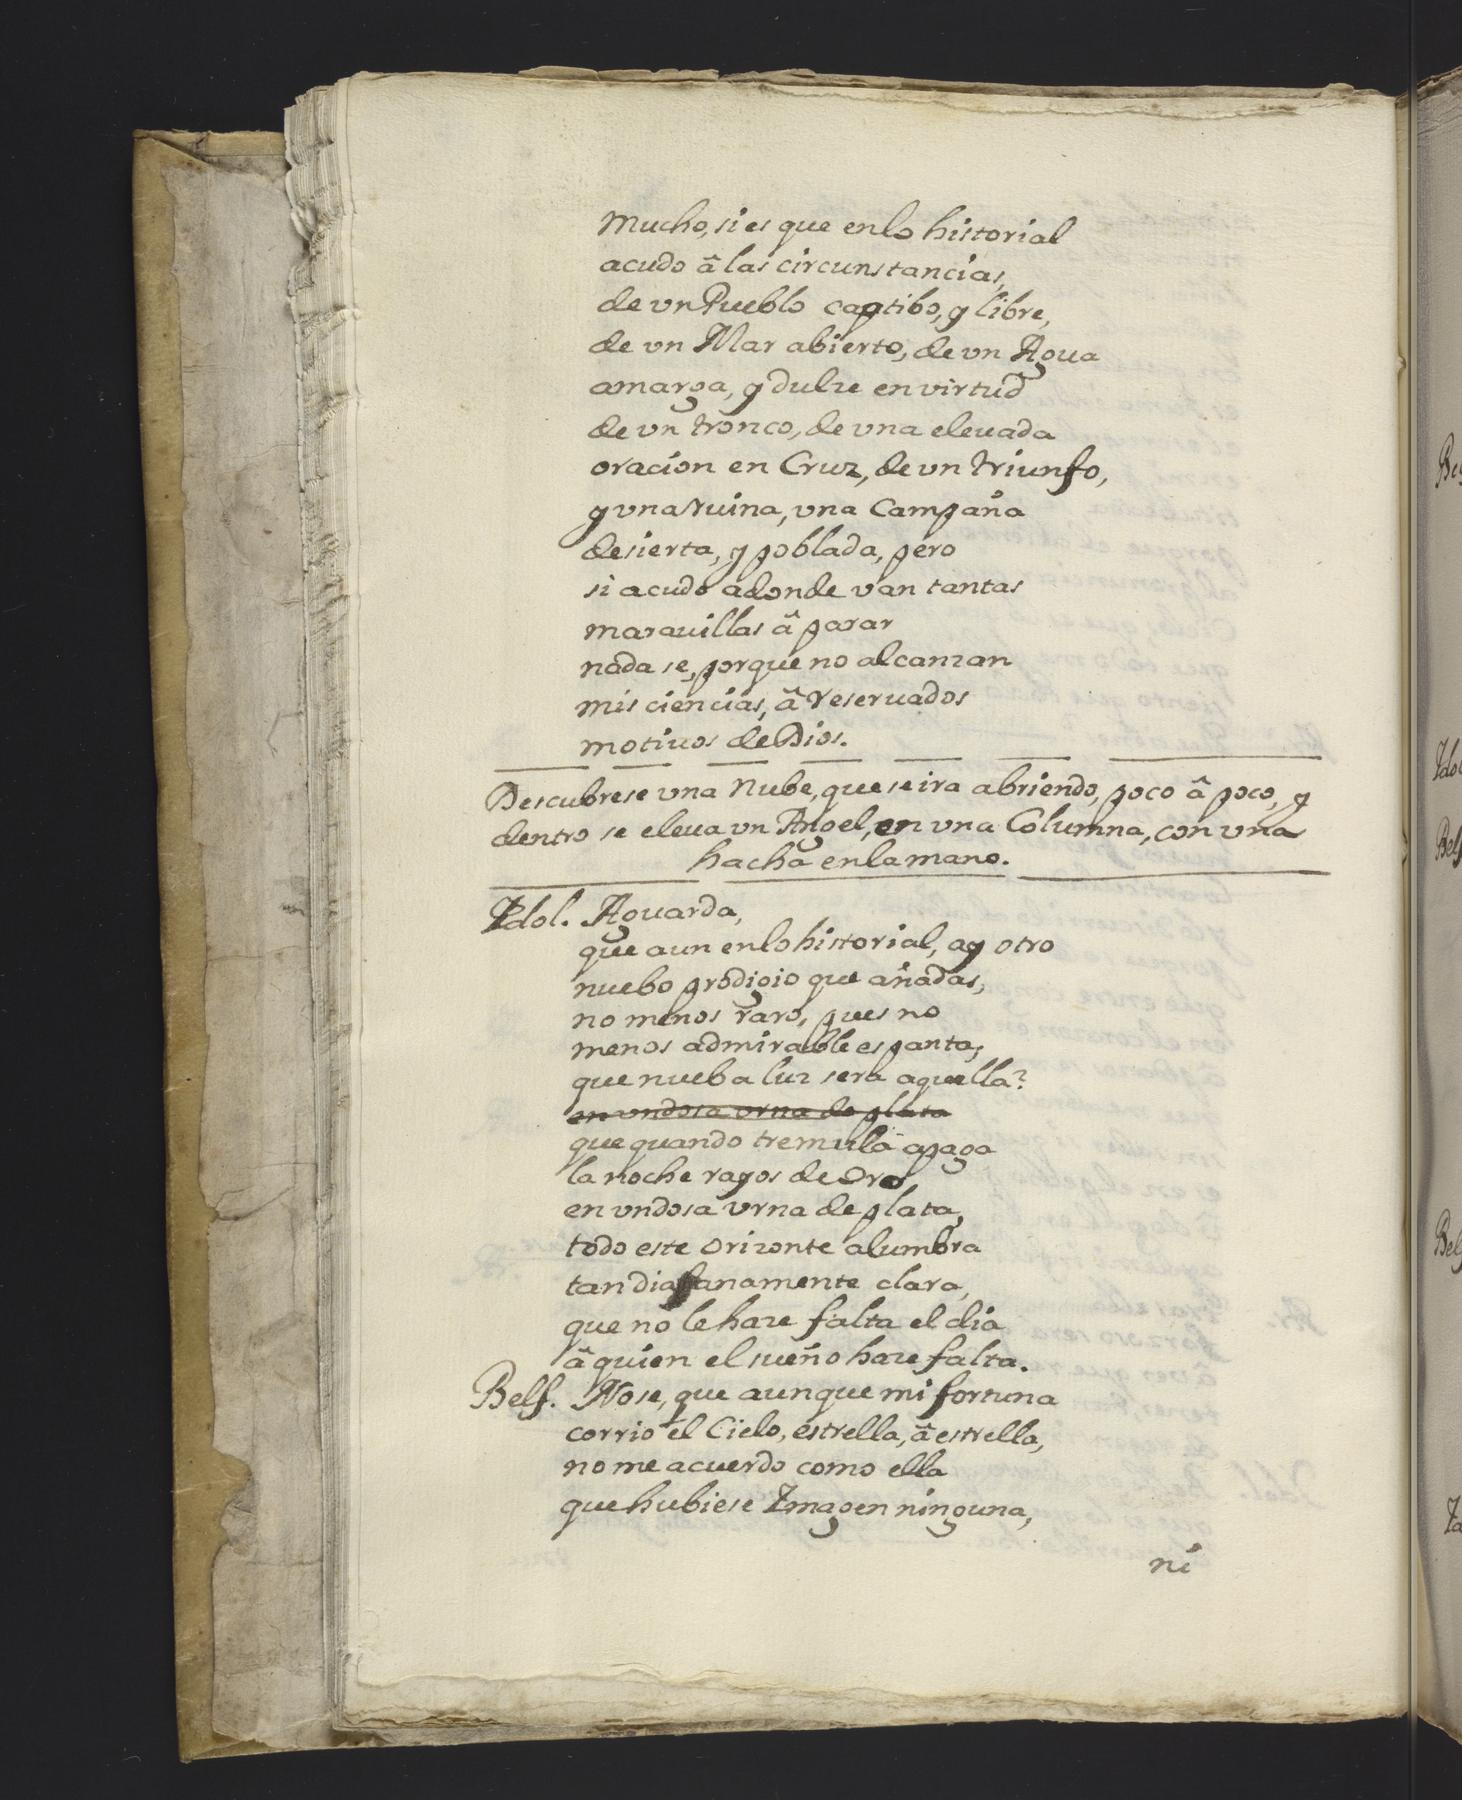 Mucho, si es que en lo historial
acudo â las circunstancias,
de vn Pueblo captibo, y libre,
de vn Mar abierto, de vn Agua
amarga, y dulze en virtud
de vn tronco, de vna eleuada
oracion en Cruz, de vn triunfo,
y vna ruina, vna Campaña
desierta, y poblada, pero
si acudo adonde van tantas
marauillas â parar
nada se, porque no alcanzan
mis ciencias, â reseruados
motiuos de Dios.
Descubrese vna Nube, que se ira abriendo, poco â poco, y
dentro se eleua vn Angel, en vna Columna, con vna
hacha en la mano.
Idol. Aguarda,
que aun en lo historial, ay otro
nuebo prodigio que añadas,
no menos raro, pues no
menos admirable espanta,
que nueba luz sera aquella?
en vndosa vrna de plata
que quando tremula apaga
la noche rayos de Oro
en vndosa vrna de plata,
todo este Orizonte alumbra
tan diafanamente clara,
que no le haze falta el dia
â quien el sueño haze falta.
Belf. No se, que aunque mi fortuna
corrio el Cielo, estrella, â estrella,
no me acuerdo como ella
que hubiese Imagen ninguna,
ni